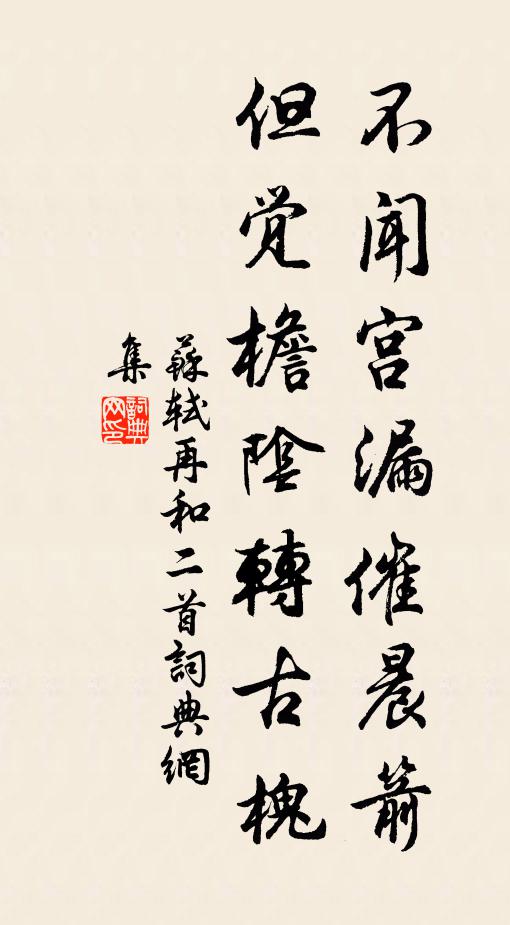 不闻宫漏催晨箭
但觉檐陰轉古槐
蘇軾再和二首詞典網
集
詞典網印